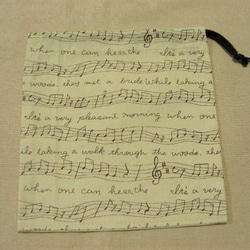 when one can hear the It's a very
woods, they met a bride While taking a
It's a very pleasant morning when one
while taking a walk through the woods, they
when one can hear the It's a very